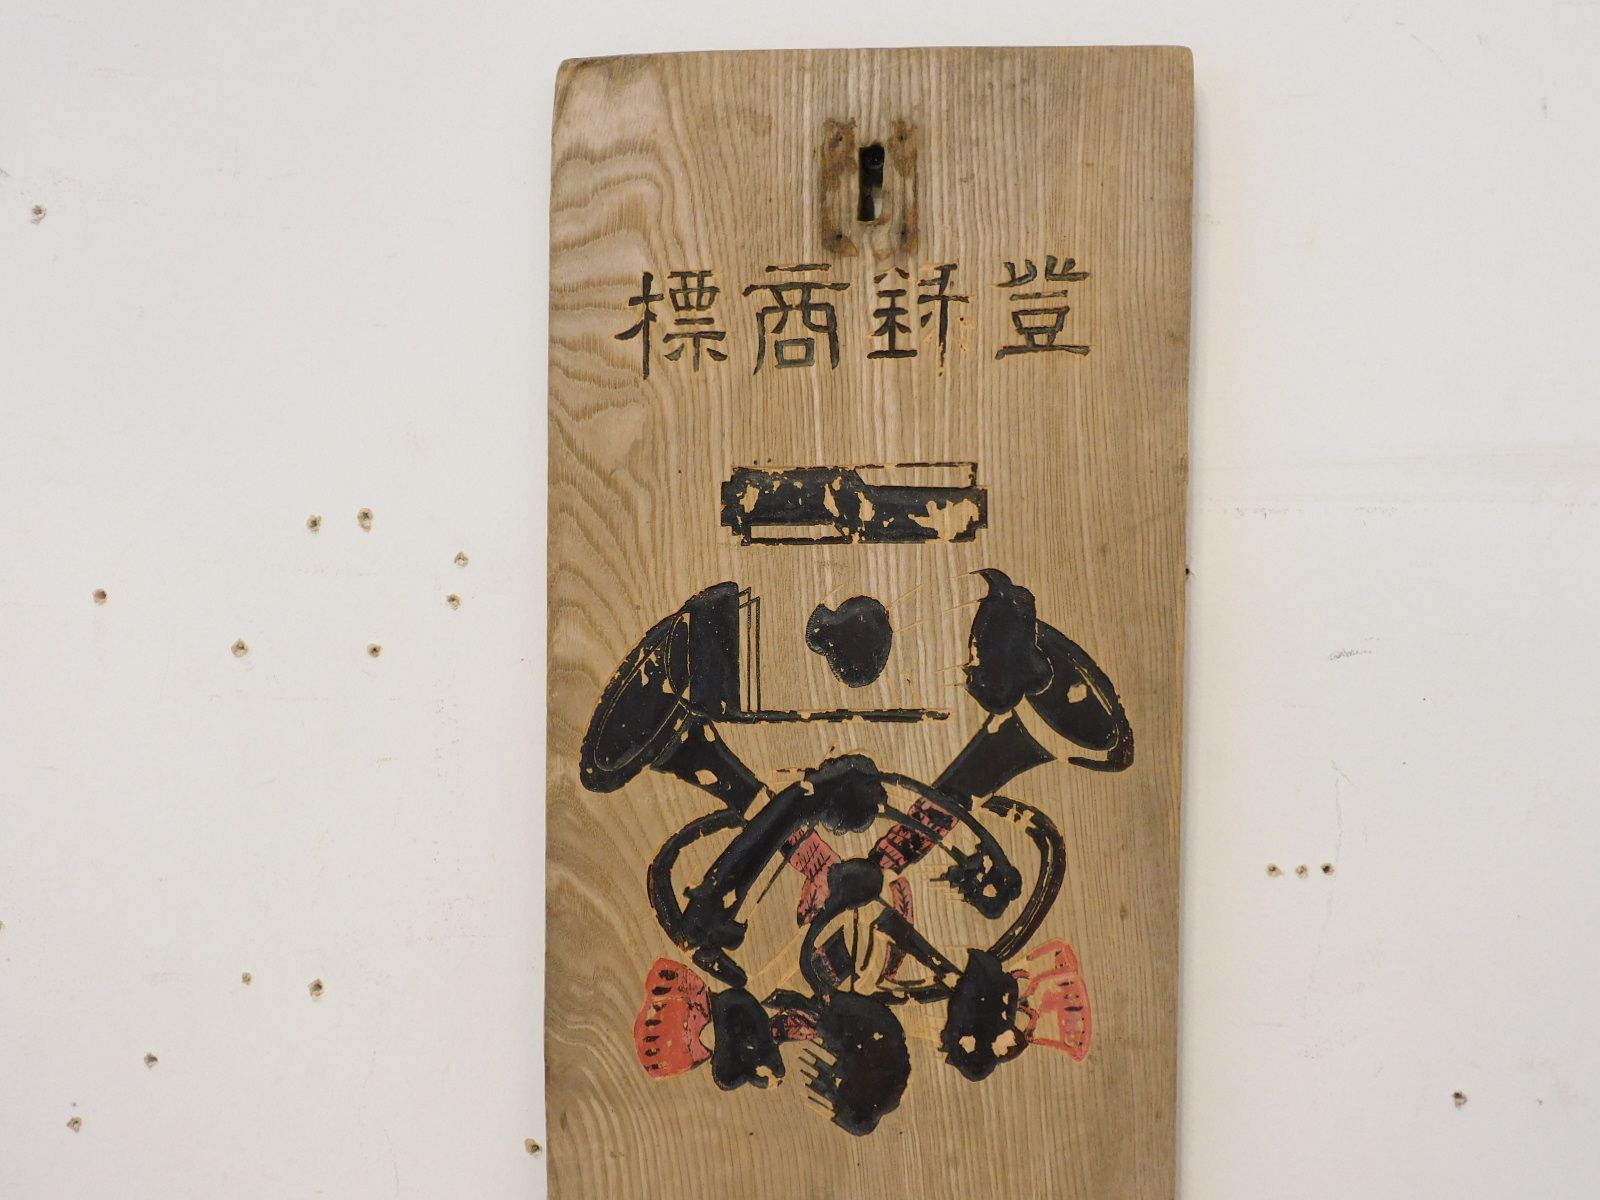 登録商標